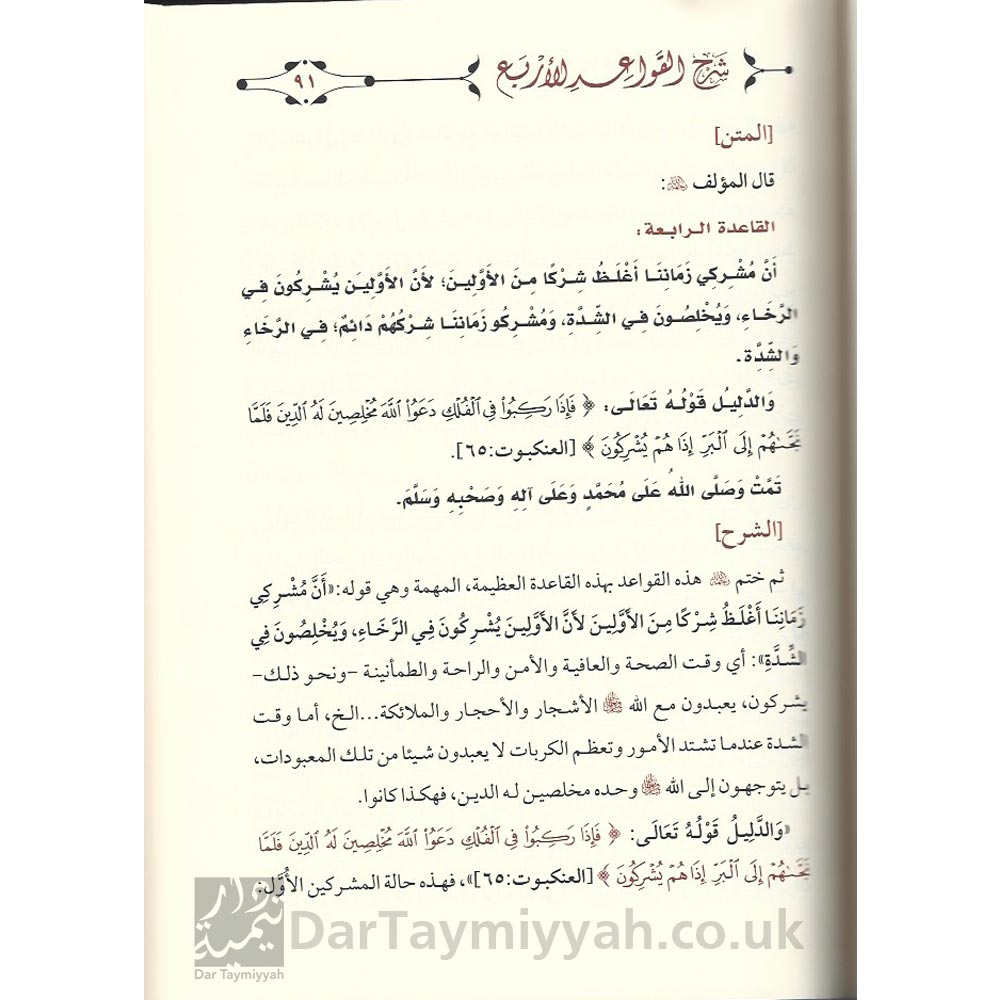 شَرْحُ القَوَاعِدِ الأَرْبَعِ
٩١
[المتن]
قال المؤلف رحمه الله:
القاعدة الرابعة:
أَنَّ مُشْرِكِي زَمَانِنَا أَغْلَظُ شِرْكًا مِنَ الأَوَّلِينَ؛ لأَنَّ الأَوَّلِيَن يُشْرِكُونَ فِي
الرَّخَاءِ، وَيُخْلِصُونَ فِي الشِّدَّةِ، وَمُشْرِكُو زَمَانِنَا شِرْكُهُمْ دَائِمٌ؛ فِي الرَّخَاءِ
وَالشِّدَّة.
وَالدَّلِيلُ قَوْلُهُ تَعَالَى: ﴿ فَإِذَا رَكِبُوا۟ فِي ٱلْفُلْكِ دَعَوُا۟ ٱللَّهَ مُخْلِصِينَ لَهُ ٱلدِّينَ فَلَمَّا
نَجَّىٰهُمْ إِلَى ٱلْبَرِّ إِذَا هُمْ يُشْرِكُونَ ﴾ [العنكبوت:٦٥].
تَمَّتْ وَصَلَّى اللهُ عَلَى مُحَمَّدٍ وَعَلَى آلِهِ وَصَحْبِهِ وَسَلَّمَ.
[الشرح]
ثم ختم رحمه الله هذه القواعد بهذه القاعدة العظيمة، المهمة وهي قوله:«أَنَّ مُشْرِكِي
زَمَانِنَا أَغْلَظُ شِرْكًا مِنَ الأَوَّلِينَ لأَنَّ الأَوَّلِينَ يُشْرِكُونَ فِي الرَّخَاءِ، وَيُخْلِصُونَ فِي
الشِّدَّةِ»: أي وقت الصحة والعافية والأمن والراحة والطمأنينة -ونحو ذلك-
يشركون، يعبدون مع الله ﷻ الأشجار والأحجار والملائكة...الخ، أما وقت
الشدة عندما تشتد الأمور وتعظم الكربات لا يعبدون شيئا من تلك المعبودات،
بل يتوجهون إلى الله ﷻ وحده مخلصين له الدين، فهكذا كانوا.
«وَالدَّلِيلُ قَوْلُهُ تَعَالَى: ﴿ فَإِذَا رَكِبُوا۟ فِي ٱلْفُلْكِ دَعَوُا۟ ٱللَّهَ مُخْلِصِينَ لَهُ ٱلدِّينَ فَلَمَّا
نَجَّىٰهُمْ إِلَى ٱلْبَرِّ إِذَا هُمْ يُشْرِكُونَ ﴾ [العنكبوت:٦٥]»، فهذه حالة المشركين الأُوَّل:
دار تيمية
Dar Taymiyyah
DarTaymiyyah.co.uk